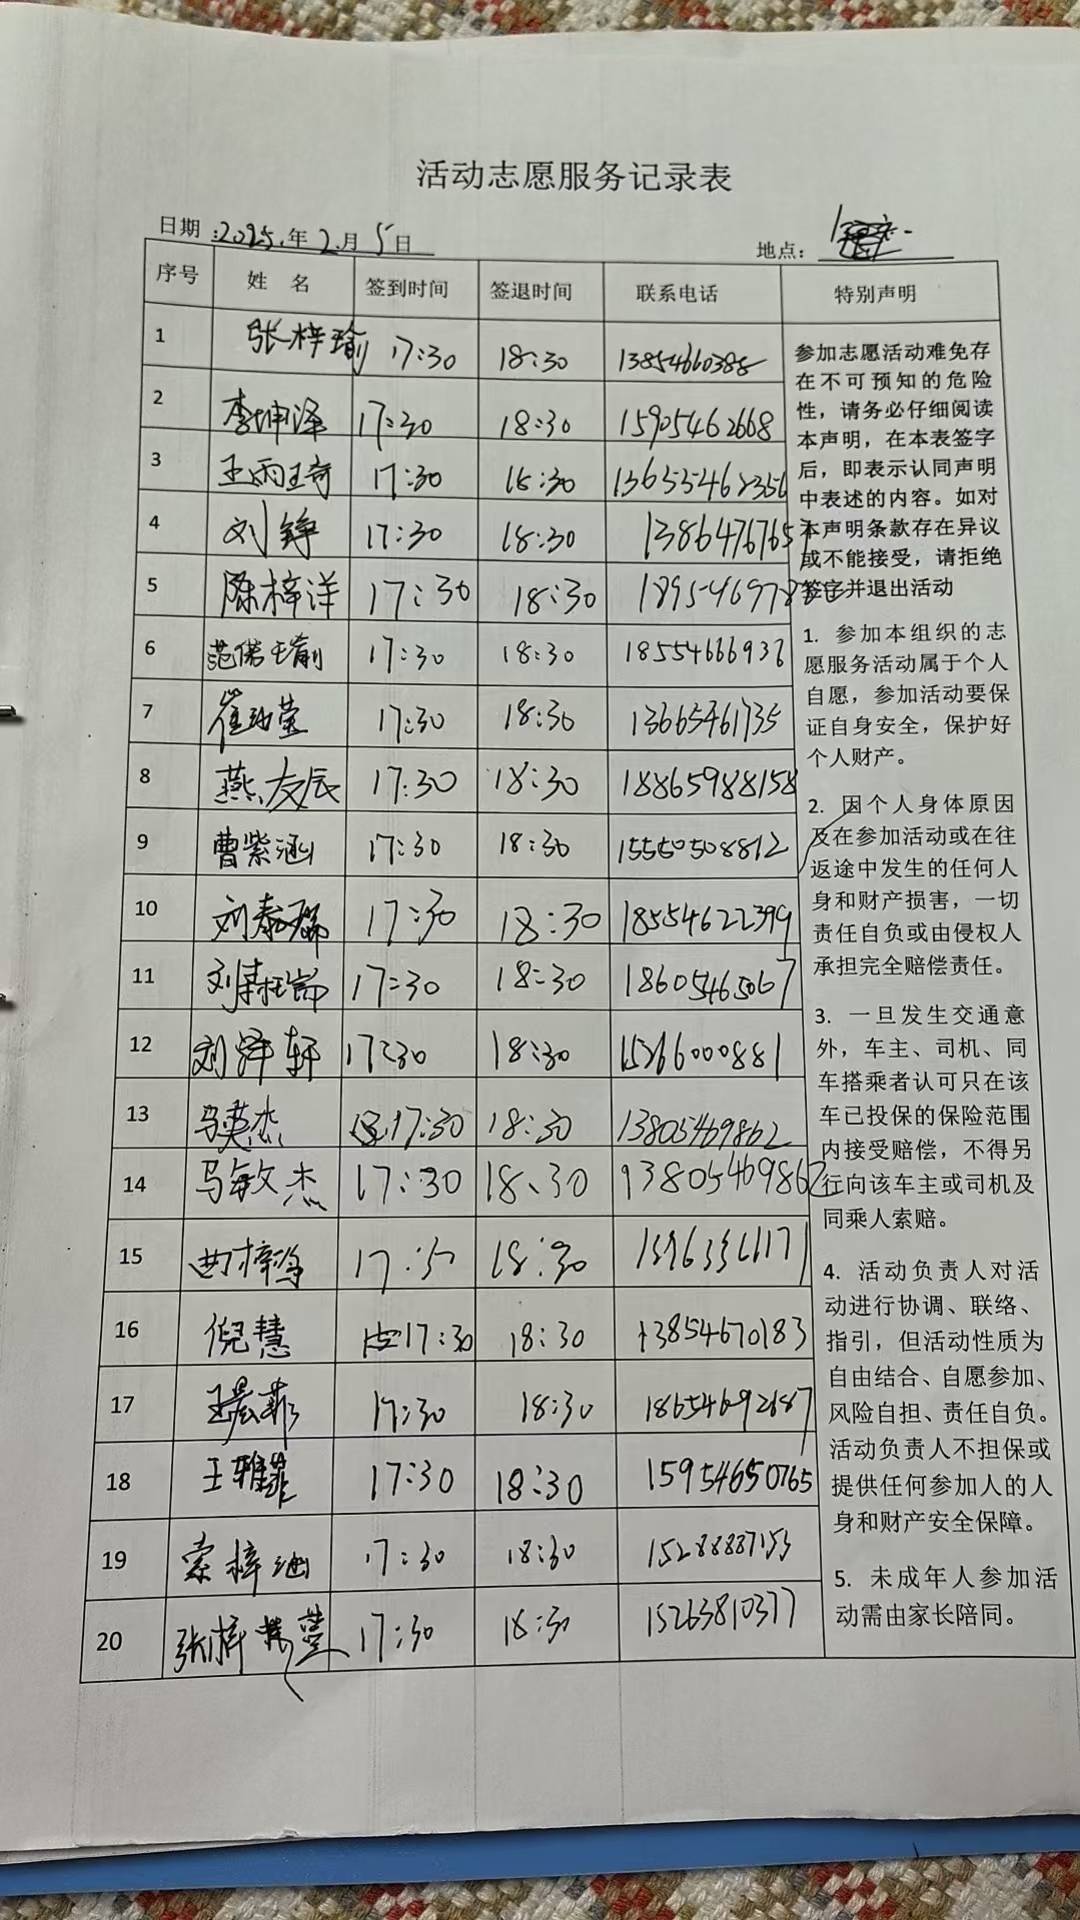 活动志愿服务记录表
日期:2025.年2.月5日
地点:
序号 姓 名 签到时间 签退时间 联系电话 特别声明
1 张梓瑜 17:30 18:30 13854660388
2 李坤泽 17:30 18:30 15905462668
3 王雨琦 17:30 18:30
4 刘铮 17:30 18:30
5 陈梓洋 17:30 18:30
6 范偌瑜 17:30 18:30 18554666936
7 17:30 18:30 13665461735
8 燕友辰 17:30 18:30 18865988158
9 曹紫涵 17:30 18:30 15550508812
10 刘泰瑞 17:30 18:30 18554622399
11 17:30 18:30 18605465067
12 刘泽轩 17:30 18:30 15266000881
13 马英杰 17:30 18:30 13805469862
14 马敏杰 17:30 18:30 13805469862
15 曲梓鸣 18:30
16 倪慧 17:30 18:30 13854670183
17 17:30 18:30 18654692687
18 王雅菲 17:30 18:30 15954650765
19 索梓涵 17:30 18:30
20 17:30 18:30 15263810377
参加志愿活动难免存
在不可预知的危险
性,请务必仔细阅读
本声明,在本表签字
后,即表示认同声明
中表述的内容。如对
本声明条款存在异议
或不能接受,请拒绝
签字并退出活动
1. 参加本组织的志
愿服务活动属于个人
自愿,参加活动要保
证自身安全,保护好
个人财产。
2. 因个人身体原因
及在参加活动或在往
返途中发生的任何人
身和财产损害,一切
责任自负或由侵权人
承担完全赔偿责任。
3. 一旦发生交通意
外,车主、司机、同
车搭乘者认可只在该
车已投保的保险范围
内接受赔偿,不得另
行向该车主或司机及
同乘人索赔。
4. 活动负责人对活
动进行协调、联络、
指引,但活动性质为
自由结合、自愿参加、
风险自担、责任自负。
活动负责人不担保或
提供任何参加人的人
身和财产安全保障。
5. 未成年人参加活
动需由家长陪同。